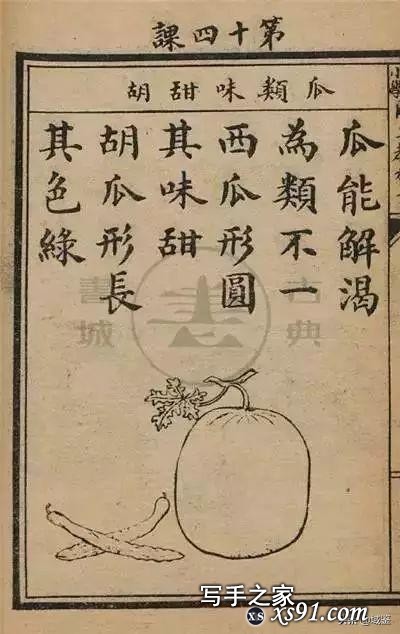 第十四課
瓜類味甜胡
瓜能解渴
為類不一
西瓜形圓
其味甜
胡瓜形長
其色綠
古典
書城
写手之家
xs91.com